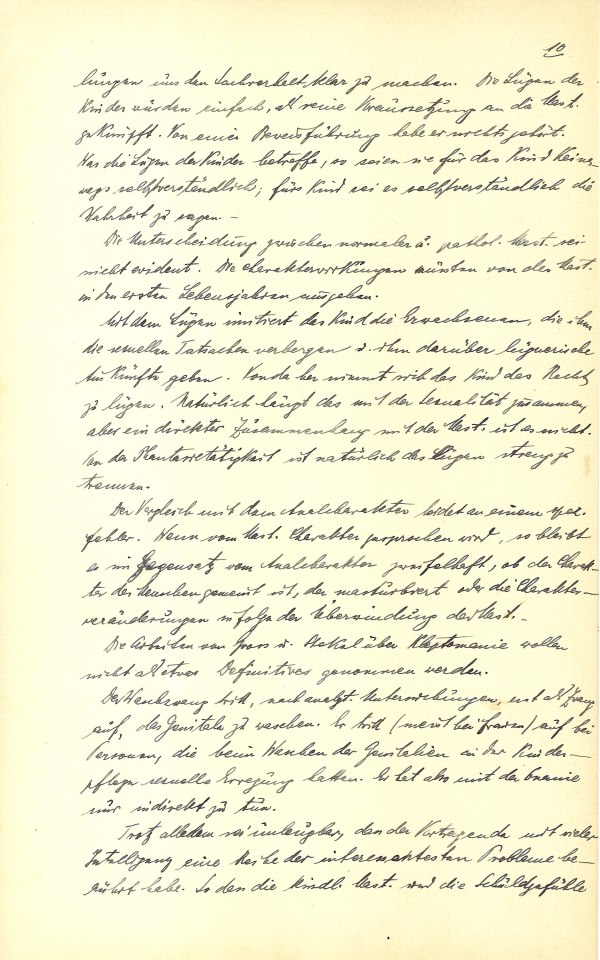 10
lungen uns den Sachverhalt klar zu machen. Die Lügen der
Kinder würden einfach, als reine Voraussetzung an die Mast.
geknüpft. Von einer Beweisführung habe er nichts gehört.
Was die Lügen der Kinder betreffe, so seien sie für das Kind keines-
wegs selbstverständlich; fürs Kind sei es selbstverständlich die
Wahrheit zu sagen. –
Die Unterscheidung zwischen normaler u. pathol. Mast. sei
nicht evident. Die Charakterwirkungen müssten von der Mast.
in den ersten Lebensjahren ausgehen.
Mit dem Lügen imitiert das Kind die Erwachsenen, die ihm
die sexuellen Tatsachen verbergen u. ihm darüber lügnerische
Auskünfte geben. Von da her nimmt sich das Kind das Recht
zu lügen. Natürlich hängt das mit der Sexualität zusammen,
aber ein direkter Zusammenhang mit der Mast. ist es nicht.
Von der Phantasietätigkeit ist natürlich das Lügen streng zu
trennen.
Der Vergleich mit dem Analcharakter leidet an einem
fehler. Wenn vom Mast. Charakter gesprochen wird, so bleibt
es im Gegensatz vom Analcharakter zweifelhaft, ob der Charak-
ter des Menschen gemeint ist, der masturbiert oder die Charakter-
veränderungen infolge der Überwindung der Mast. –
Die Arbeiten von Gross u. Stekel über Kleptomanie wollen
nicht als etwas Definitives genommen werden.
Der Waschzwang tritt, nach analyt. Untersuchungen, erst als Zwang
auf, das Genitale zu waschen. Er tritt (meist bei Frauen) auf bei
Personen, die beim Waschen der Genitalien in der Kinder-
pflege sexuelle Erregung hatten. Er hat also mit der Onanie
nur indirekt zu tun.
Trotz alledem sei unleugbar, dass der Vortragende mit vieler
Intelligenz eine Reihe der interessantesten Probleme be-
rührt habe. So dass die kindl. Mast. und die Schuldgefühle